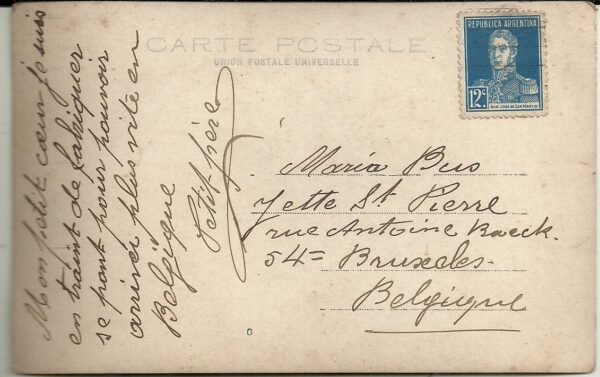 CARTE POSTALE
UNION POSTALE UNIVERSELLE
REPUBLICA ARGENTINA
12c
Gral. JOSE DE SAN MARTIN
Mon petit cœur je suis
en traint de fabriquer
se pont pour pouvoir
arriver plus vite en
Belgïque
Petit-père
Maria Bus
Jette St Pierre
rue Antoine Baeck.
54= Bruxelles.
Belgique